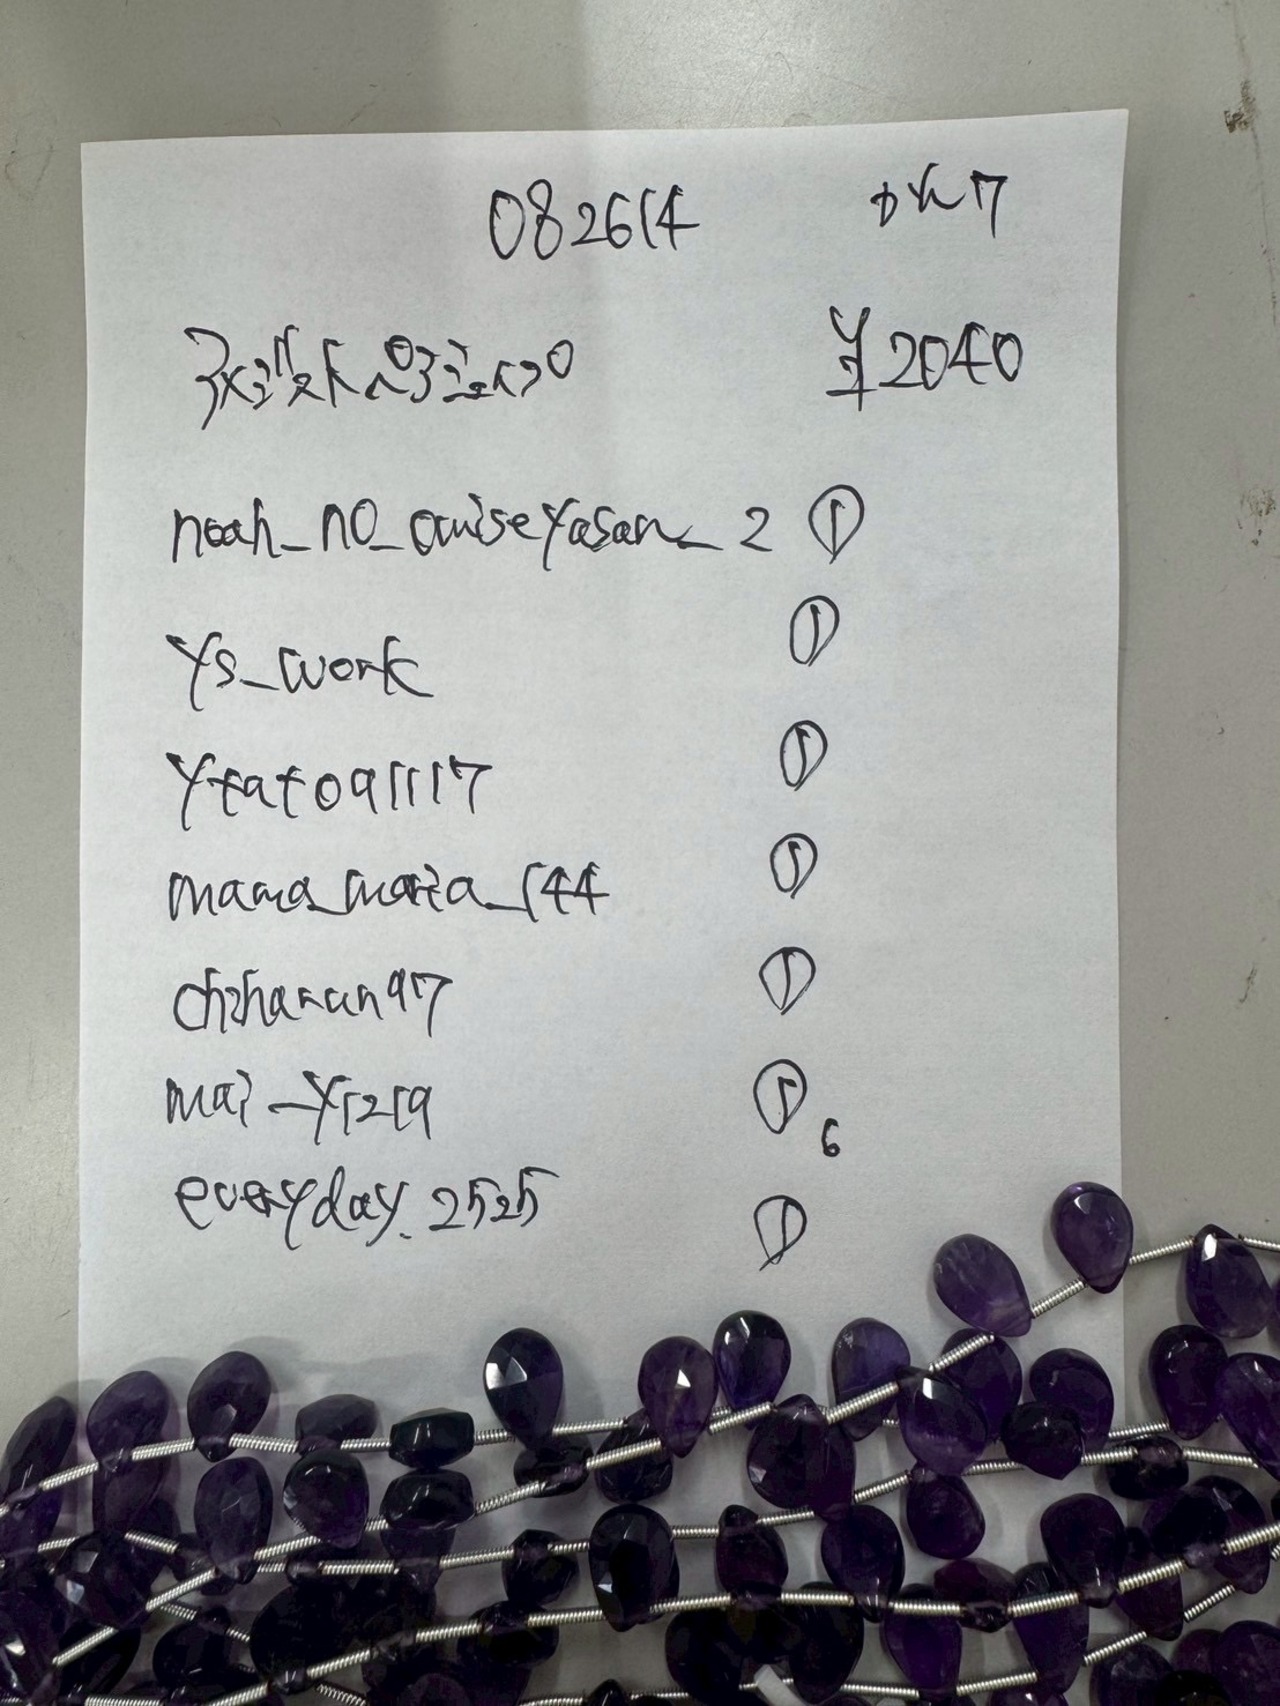 082614 かん7
アメジスト ¥2040
noah_no_omiseyasan_2 ①
ys_work ①
ytato91117 ①
mama_maria_144 ①
chiharun97 ①
mai_y1219 ① 6
everyday.2525 ①